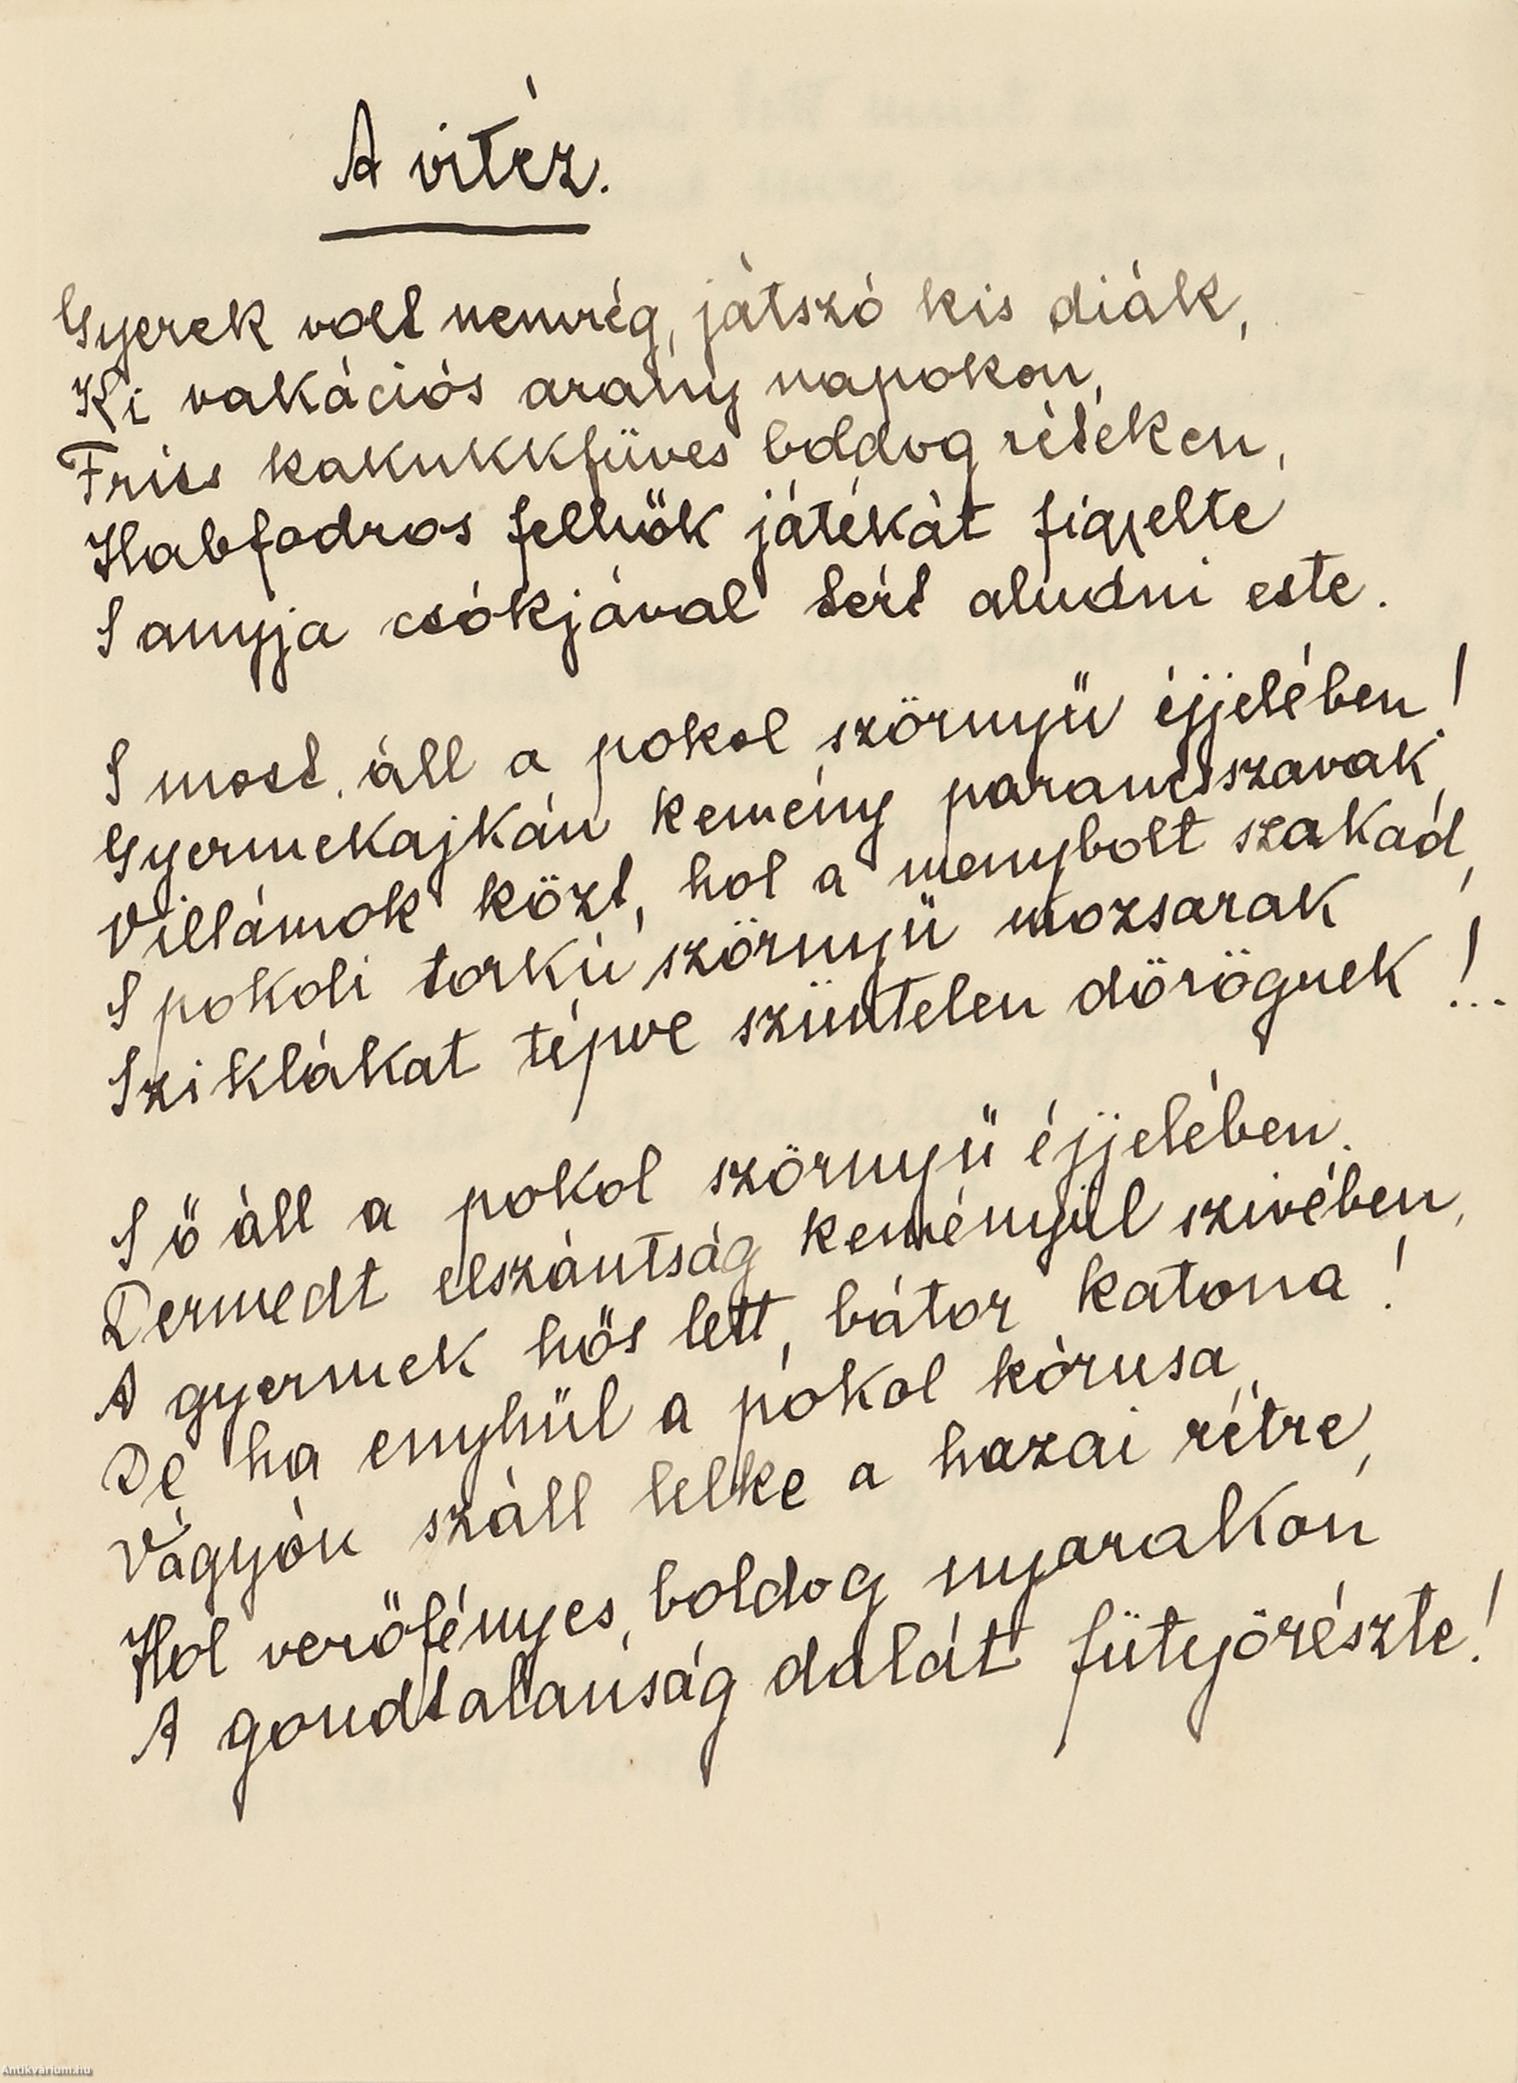 A vitéz.
Gyerek volt nemrég, játszó kis diák,
Ki vakációs arany napokon,
Friss kakukkfüves boldog réteken,
Habfodros felhők játékát figyelte
S anyja csókjával tért aludni este.
S most áll a pokol szörnyű éjjelében!
Gyermekajkán kemény parancsszavak,
Villámok közt, hol a menybolt szakad,
S pokoli torkú szörnyű mozsarak
Sziklákat tépve szüntelen dörögnek!...
S ő áll a pokol szörnyű éjjelében.
Dermedt elszántság keményül szivében,
A gyermek hős lett, bátor katona!
De ha enyhül a pokol kórusa,
Vágyón száll lelke a hazai rétre,
Hol verőfényes, boldog nyarakon
A gondtalanság dalát fütyörészte!
Antikvarium.hu